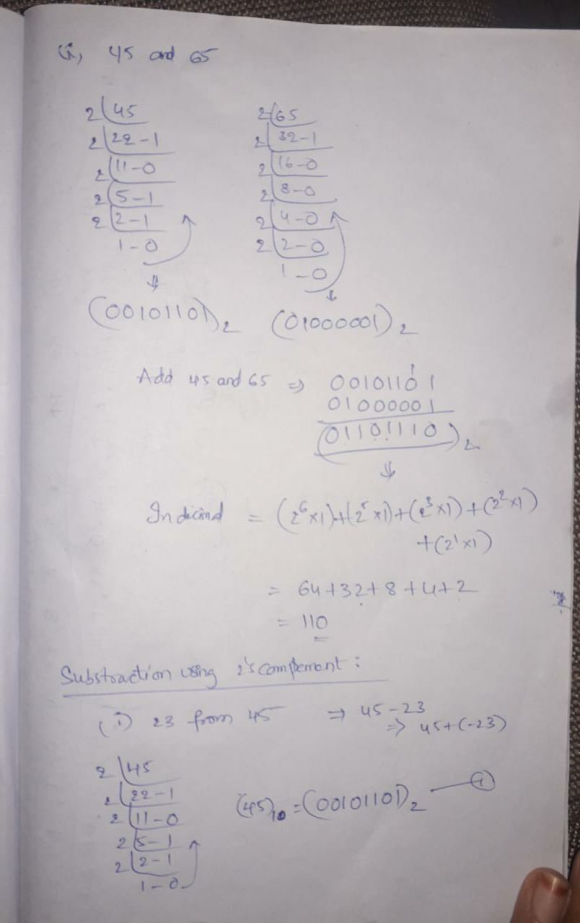 (i), 45 and 65
2 45
2 22-1
2 11-0
2 5-1
2 2-1
1-0
2 65
2 32-1
2 16-0
2 8-0
2 4-0
2 2-0
1-0
(00101101)₂ (01000001)₂
Add 45 and 65 ⇒ 00101101
1
01000001
(01101110)₂
In decimal = (2⁶×1)+(2⁵×1)+(2³×1)+(2²×1)
+(2¹×1)
= 64+32+8+4+2
= 110
Substraction using 2's complement :
(i) 23 from 45 ⇒ 45-23
⇒ 45+(-23)
2 45
2 22-1
2 11-0
2 5-1
2 2-1
1-0
(45)₁₀ = (00101101)₂ —